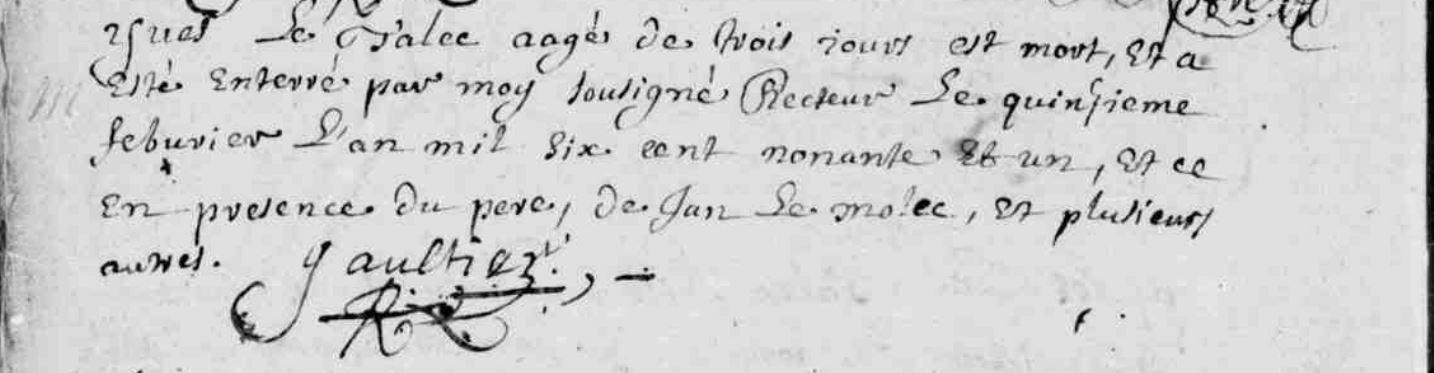 yves Le Galec aagé de trois jours est mort, et a
esté enterré par moy soutigné Recteur Le quinsieme
feburier L'an mil six cent nonante et un, et ce
en presence du pere, de Jan Le molec, et plusieurs
autres. Gaultier.